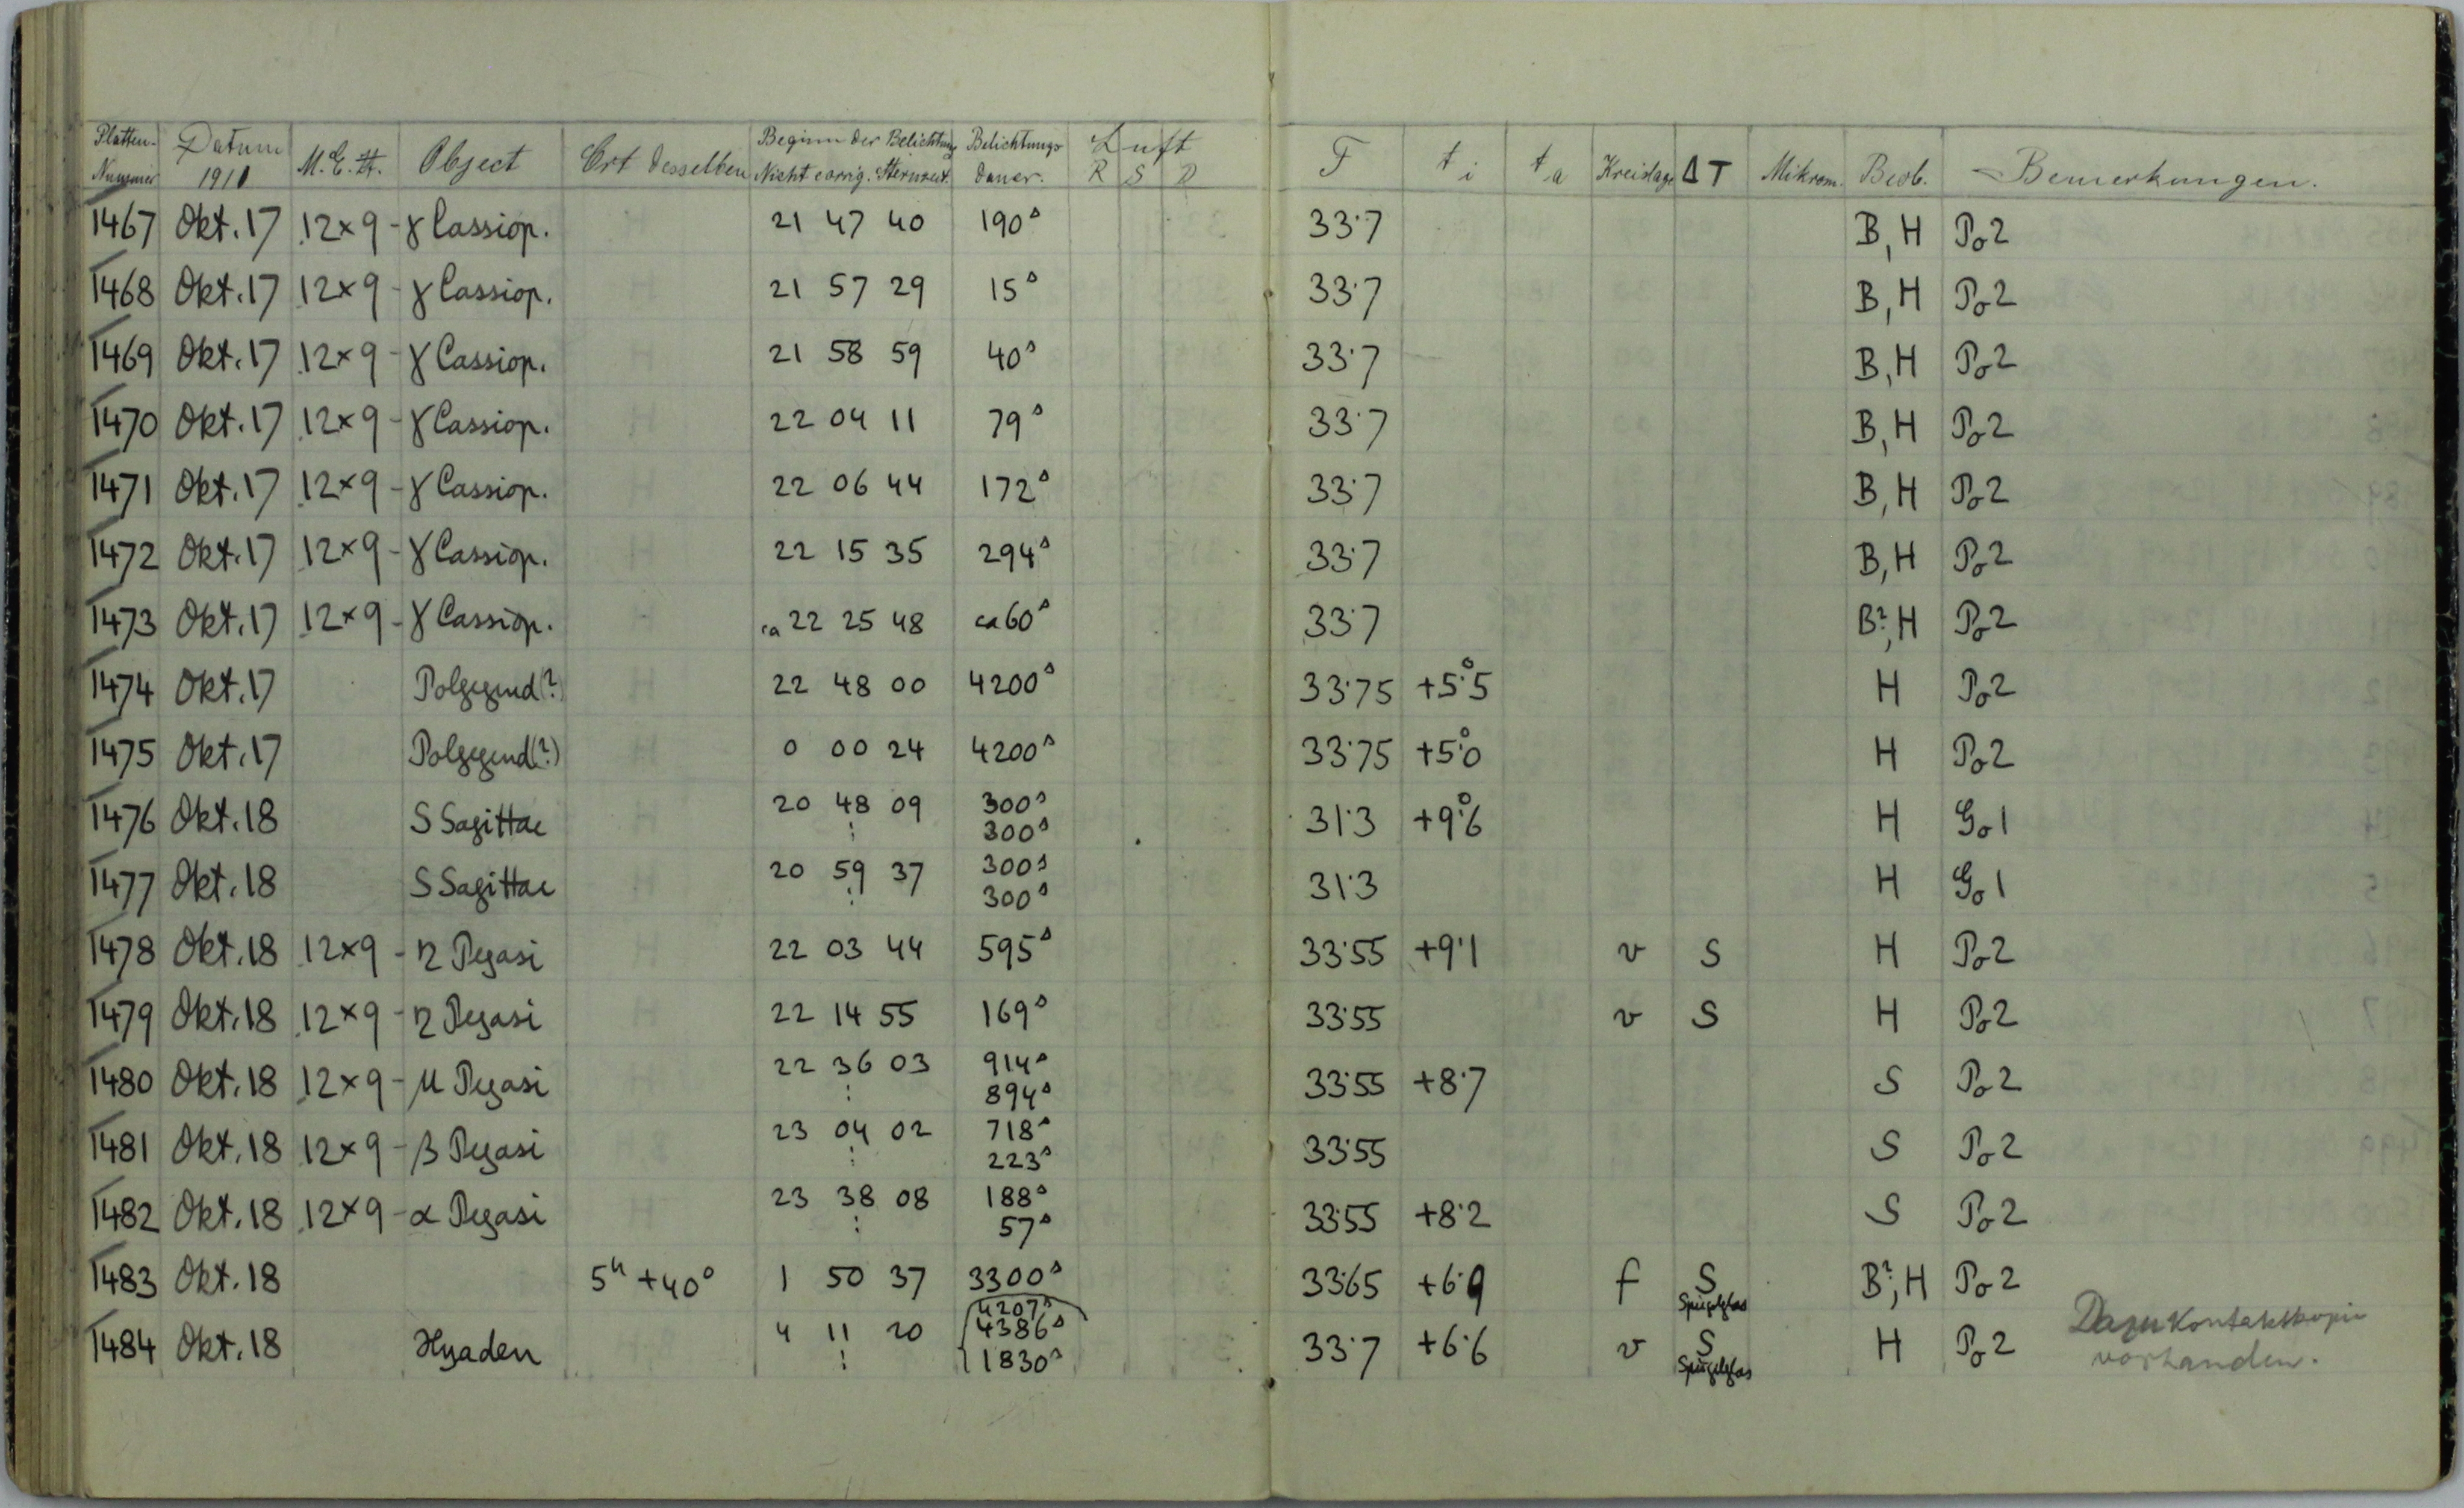 Platten-Nummer Datum 1911 M.E.Z. Object Ort desselben Beginn der Belichtung Nicht corrig. Sternzeit. Belichtungs dauer. Luft R S D F t i t a Kreislage ΔT Mikrom. Beob. Bemerkungen.
1467 Okt. 17 12×9 - γ Cassiop. 21 47 40 190ˢ 33·7 B, H Po2
1468 Okt. 17 12×9 - γ Cassiop. 21 57 29 15ˢ 33·7 B, H Po2
1469 Okt. 17 12×9 - γ Cassiop. 21 58 59 40ˢ 33·7 B, H Po2
1470 Okt. 17 12×9 - γ Cassiop. 22 04 11 79ˢ 33·7 B, H Po2
1471 Okt. 17 12×9 - γ Cassiop. 22 06 44 172ˢ 33·7 B, H Po2
1472 Okt. 17 12×9 - γ Cassiop. 22 15 35 294ˢ 33·7 B, H Po2
1473 Okt. 17 12×9 - γ Cassiop. ca 22 25 48 ca 60ˢ 33·7 B?, H Po2
1474 Okt. 17 Polgegend(?) 22 48 00 4200ˢ 33·75 +5°·5 H Po2
1475 Okt. 17 Polgegend(?) 0 00 24 4200ˢ 33·75 +5°·0 H Po2
1476 Okt. 18 S Sagittae 20 48 09 300ˢ 31·3 +9°·6 H Go1
: 300ˢ
1477 Okt. 18 S Sagittae 20 59 37 300ˢ 31·3 H Go1
: 300ˢ
1478 Okt. 18 12×9 - η Pegasi 22 03 44 595ˢ 33·55 +9·1 v S H Po2
1479 Okt. 18 12×9 - η Pegasi 22 14 55 169ˢ 33·55 v S H Po2
1480 Okt. 18 12×9 - μ Pegasi 22 36 03 914ˢ 33·55 +8·7 S Po2
: 894ˢ
1481 Okt. 18 12×9 - β Pegasi 23 04 02 718ˢ 33·55 S Po2
: 223ˢ
1482 Okt. 18 12×9 - α Pegasi 23 38 08 188ˢ 33·55 +8·2 S Po2
: 57ˢ
1483 Okt. 18 5ʰ +40° 1 50 37 3300ˢ 33·65 +6·9 f S Spiegelglas B?, H Po2
4207ˢ
1484 Okt. 18 Hyaden 4 11 20 4386ˢ 33·7 +6·6 v S Spiegelglas H Po2 Dazu Kontaktkopie
: 1830ˢ vorhanden.